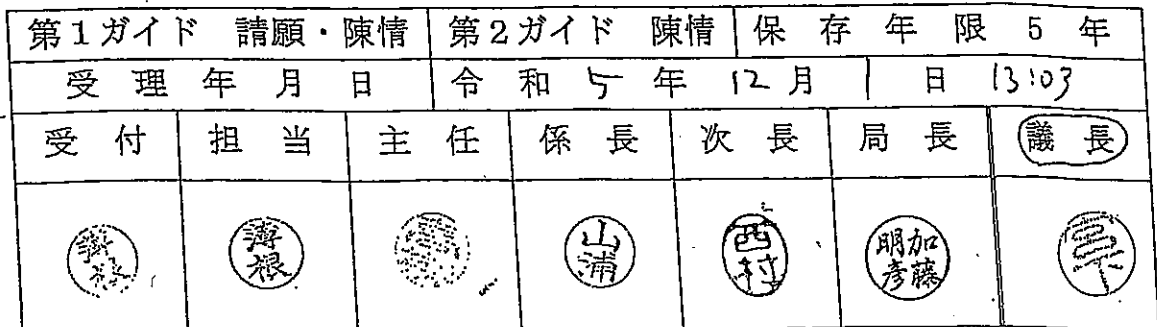 第1ガイド 請願・陳情 第2ガイド 陳情 保存年限 5年
受理年月日 令和5年12月1日 13:03
受付 担当 主任 係長 次長 局長 議長
山浦 西村 加藤明彦